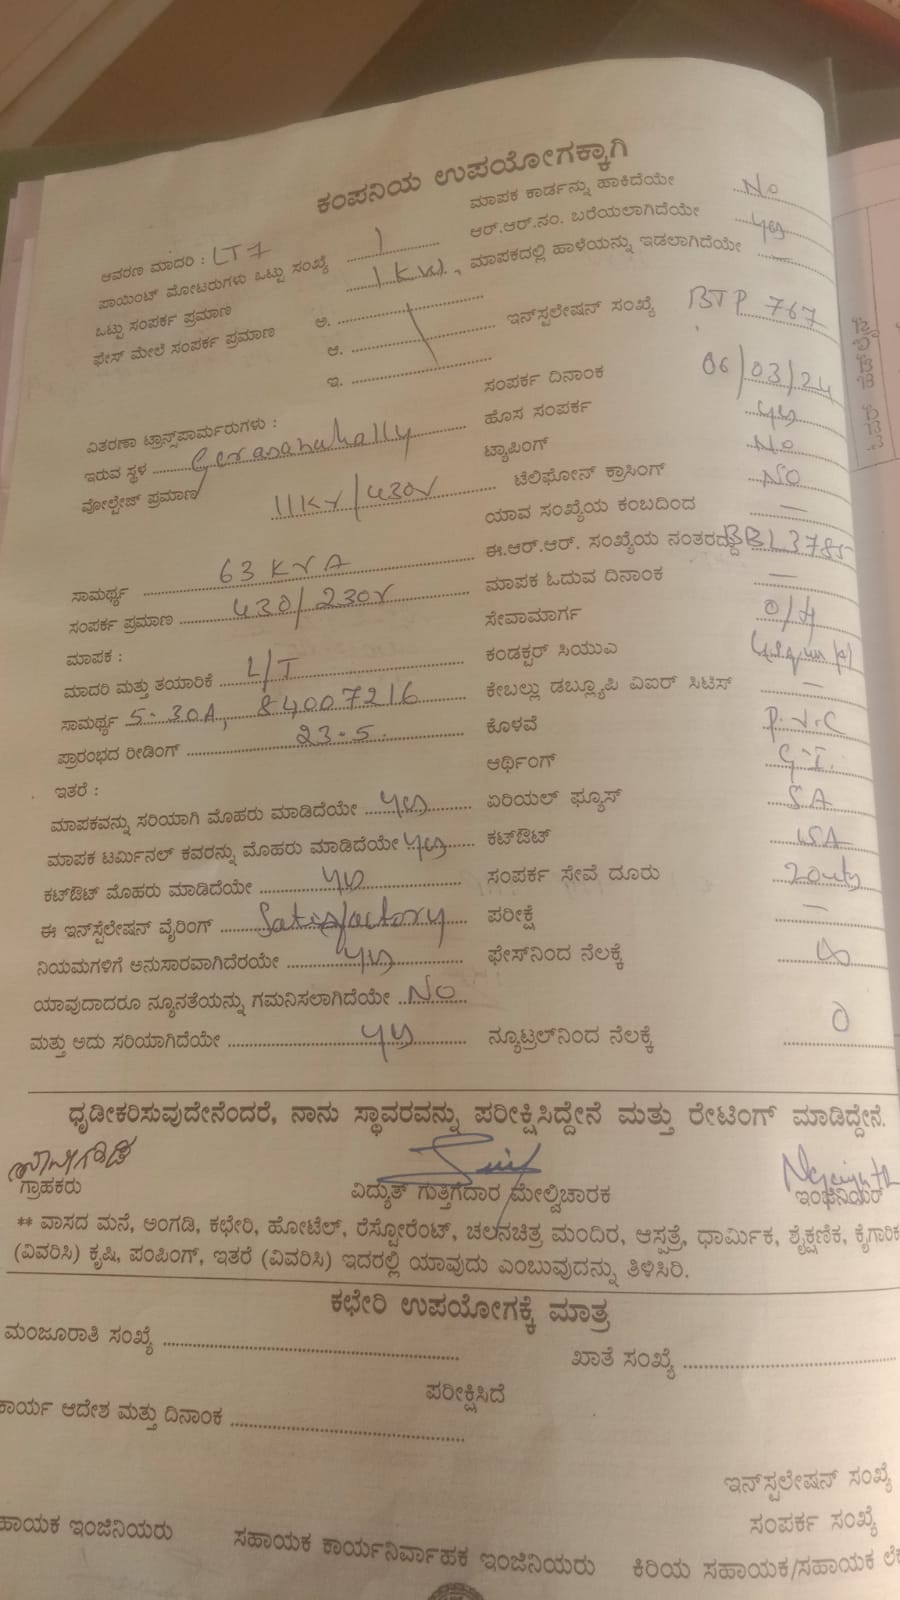 ಕಂಪನಿಯ ಉಪಯೋಗಕ್ಕಾಗಿ
ಆವರಣ ಮಾದರಿ : LT7
ಪಾಯಿಂಟ್ ಮೋಟರುಗಳು ಒಟ್ಟು ಸಂಖ್ಯೆ 1
ಒಟ್ಟು ಸಂಪರ್ಕ ಪ್ರಮಾಣ 1 KW.
ಫೇಸ್ ಮೇಲೆ ಸಂಪರ್ಕ ಪ್ರಮಾಣ ಅ.
ಆ.
ಇ.
ವಿತರಣಾ ಟ್ರಾನ್ಸ್‌ಪಾರ್ಮರುಗಳು :
ಇರುವ ಸ್ಥಳ
ವೋಲ್ಟೇಜ್ ಪ್ರಮಾಣ 11KV/430V
ಸಾಮರ್ಥ್ಯ 63 KVA
ಸಂಪರ್ಕ ಪ್ರಮಾಣ 430/230V
ಮಾಪಕ :
ಮಾದರಿ ಮತ್ತು ತಯಾರಿಕೆ L/T
ಸಾಮರ್ಥ್ಯ 5-30A, 84007216
ಪ್ರಾರಂಭದ ರೀಡಿಂಗ್ 23.5
ಇತರೆ :
ಮಾಪಕವನ್ನು ಸರಿಯಾಗಿ ಮೊಹರು ಮಾಡಿದೆಯೇ yes
ಮಾಪಕ ಟರ್ಮಿನಲ್ ಕವರನ್ನು ಮೊಹರು ಮಾಡಿದೆಯೇ yes
ಕಟ್‌ಔಟ್ ಮೊಹರು ಮಾಡಿದೆಯೇ yes
ಈ ಇನ್‌ಸ್ಪಲೇಷನ್ ವೈರಿಂಗ್ Satisfactory
ನಿಯಮಗಳಿಗೆ ಅನುಸಾರವಾಗಿದೆರಯೇ yes
ಯಾವುದಾದರೂ ನ್ಯೂನತೆಯನ್ನು ಗಮನಿಸಲಾಗಿದೆಯೇ NO
ಮತ್ತು ಅದು ಸರಿಯಾಗಿದೆಯೇ yes
ಮಾಪಕ ಕಾರ್ಡನ್ನು ಹಾಕಿದೆಯೇ No
ಆರ್.ಆರ್.ನಂ. ಬರೆಯಲಾಗಿದೆಯೇ yes
ಮಾಪಕದಲ್ಲಿ ಹಾಳೆಯನ್ನು ಇಡಲಾಗಿದೆಯೇ —
ಇನ್‌ಸ್ಪಲೇಷನ್ ಸಂಖ್ಯೆ BTP 767
ಸಂಪರ್ಕ ದಿನಾಂಕ 06/03/24
ಹೊಸ ಸಂಪರ್ಕ yes
ಟ್ಯಾಪಿಂಗ್ No
ಟೆಲಿಫೋನ್ ಕ್ರಾಸಿಂಗ್ NO
ಯಾವ ಸಂಖ್ಯೆಯ ಕಂಬದಿಂದ —
ಈ.ಆರ್.ಆರ್. ಸಂಖ್ಯೆಯ ನಂತರದ್ದು BBL3785
ಮಾಪಕ ಓದುವ ದಿನಾಂಕ —
ಸೇವಾಮಾರ್ಗ O/H
ಕಂಡಕ್ಟರ್ ಸಿಯುಎ
ಕೇಬಲ್ಲು ಡಬ್ಲ್ಯೂಪಿ ವಿಐರ್ ಸಿಟಿಸ್ —
ಕೊಳವೆ P.V.C
ಆರ್ಥಿಂಗ್ G.I.
ಏರಿಯಲ್ ಫ್ಯೂಸ್ 5A
ಕಟ್‌ಔಟ್ 15A
ಸಂಪರ್ಕ ಸೇವೆ ದೂರು
ಪರೀಕ್ಷೆ —
ಫೇಸ್‌ನಿಂದ ನೆಲಕ್ಕೆ
ನ್ಯೂಟ್ರಲ್‌ನಿಂದ ನೆಲಕ್ಕೆ 0
ಧೃಡೀಕರಿಸುವುದೇನೆಂದರೆ, ನಾನು ಸ್ಥಾವರವನ್ನು ಪರೀಕ್ಷಿಸಿದ್ದೇನೆ ಮತ್ತು ರೇಟಿಂಗ್ ಮಾಡಿದ್ದೇನೆ.
ಗ್ರಾಹಕರು ವಿದ್ಯುತ್ ಗುತ್ತಿಗೆದಾರ ಮೇಲ್ವಿಚಾರಕ ಇಂಜಿನಿಯರ್
** ವಾಸದ ಮನೆ, ಅಂಗಡಿ, ಕಛೇರಿ, ಹೋಟೆಲ್, ರೆಸ್ಟೋರೆಂಟ್, ಚಲನಚಿತ್ರ ಮಂದಿರ, ಆಸ್ಪತ್ರೆ, ಧಾರ್ಮಿಕ, ಶೈಕ್ಷಣಿಕ, ಕೈಗಾರಿಕ
(ವಿವರಿಸಿ) ಕೃಷಿ, ಪಂಪಿಂಗ್, ಇತರೆ (ವಿವರಿಸಿ) ಇದರಲ್ಲಿ ಯಾವುದು ಎಂಬುವುದನ್ನು ತಿಳಿಸಿರಿ.
ಕಛೇರಿ ಉಪಯೋಗಕ್ಕೆ ಮಾತ್ರ
ಮಂಜೂರಾತಿ ಸಂಖ್ಯೆ
ಖಾತೆ ಸಂಖ್ಯೆ
ಪರೀಕ್ಷಿಸಿದೆ
ಕಾರ್ಯ ಆದೇಶ ಮತ್ತು ದಿನಾಂಕ
ಇನ್‌ಸ್ಪಲೇಷನ್ ಸಂಖ್ಯೆ
ಸಂಪರ್ಕ ಸಂಖ್ಯೆ
ಹಾಯಕ ಇಂಜಿನಿಯರು ಸಹಾಯಕ ಕಾರ್ಯನಿರ್ವಾಹಕ ಇಂಜಿನಿಯರು ಕಿರಿಯ ಸಹಾಯಕ/ಸಹಾಯಕ ಲೆ